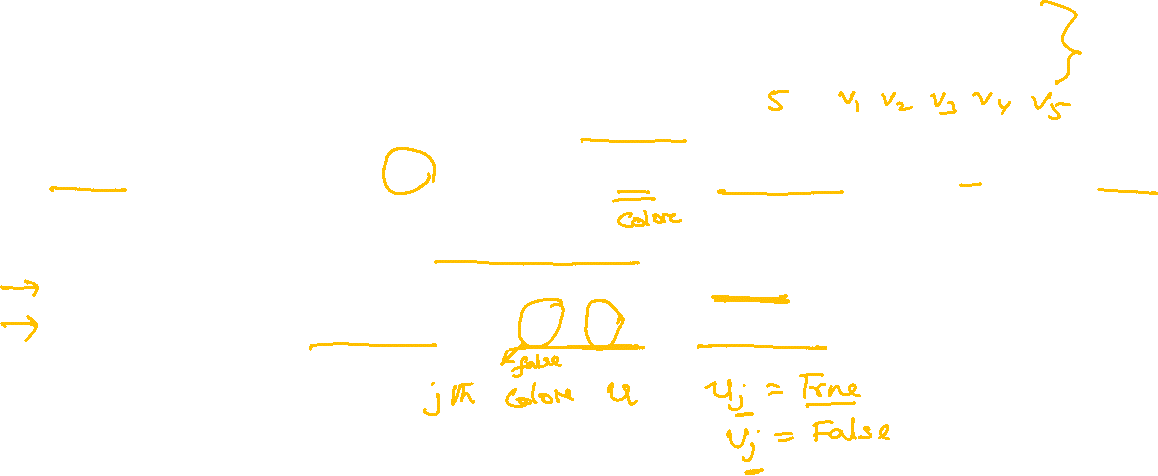 5 v₁ v₂ v₃ v₄ v₅
Color
false
jth Color u u_j = True
v_j = False